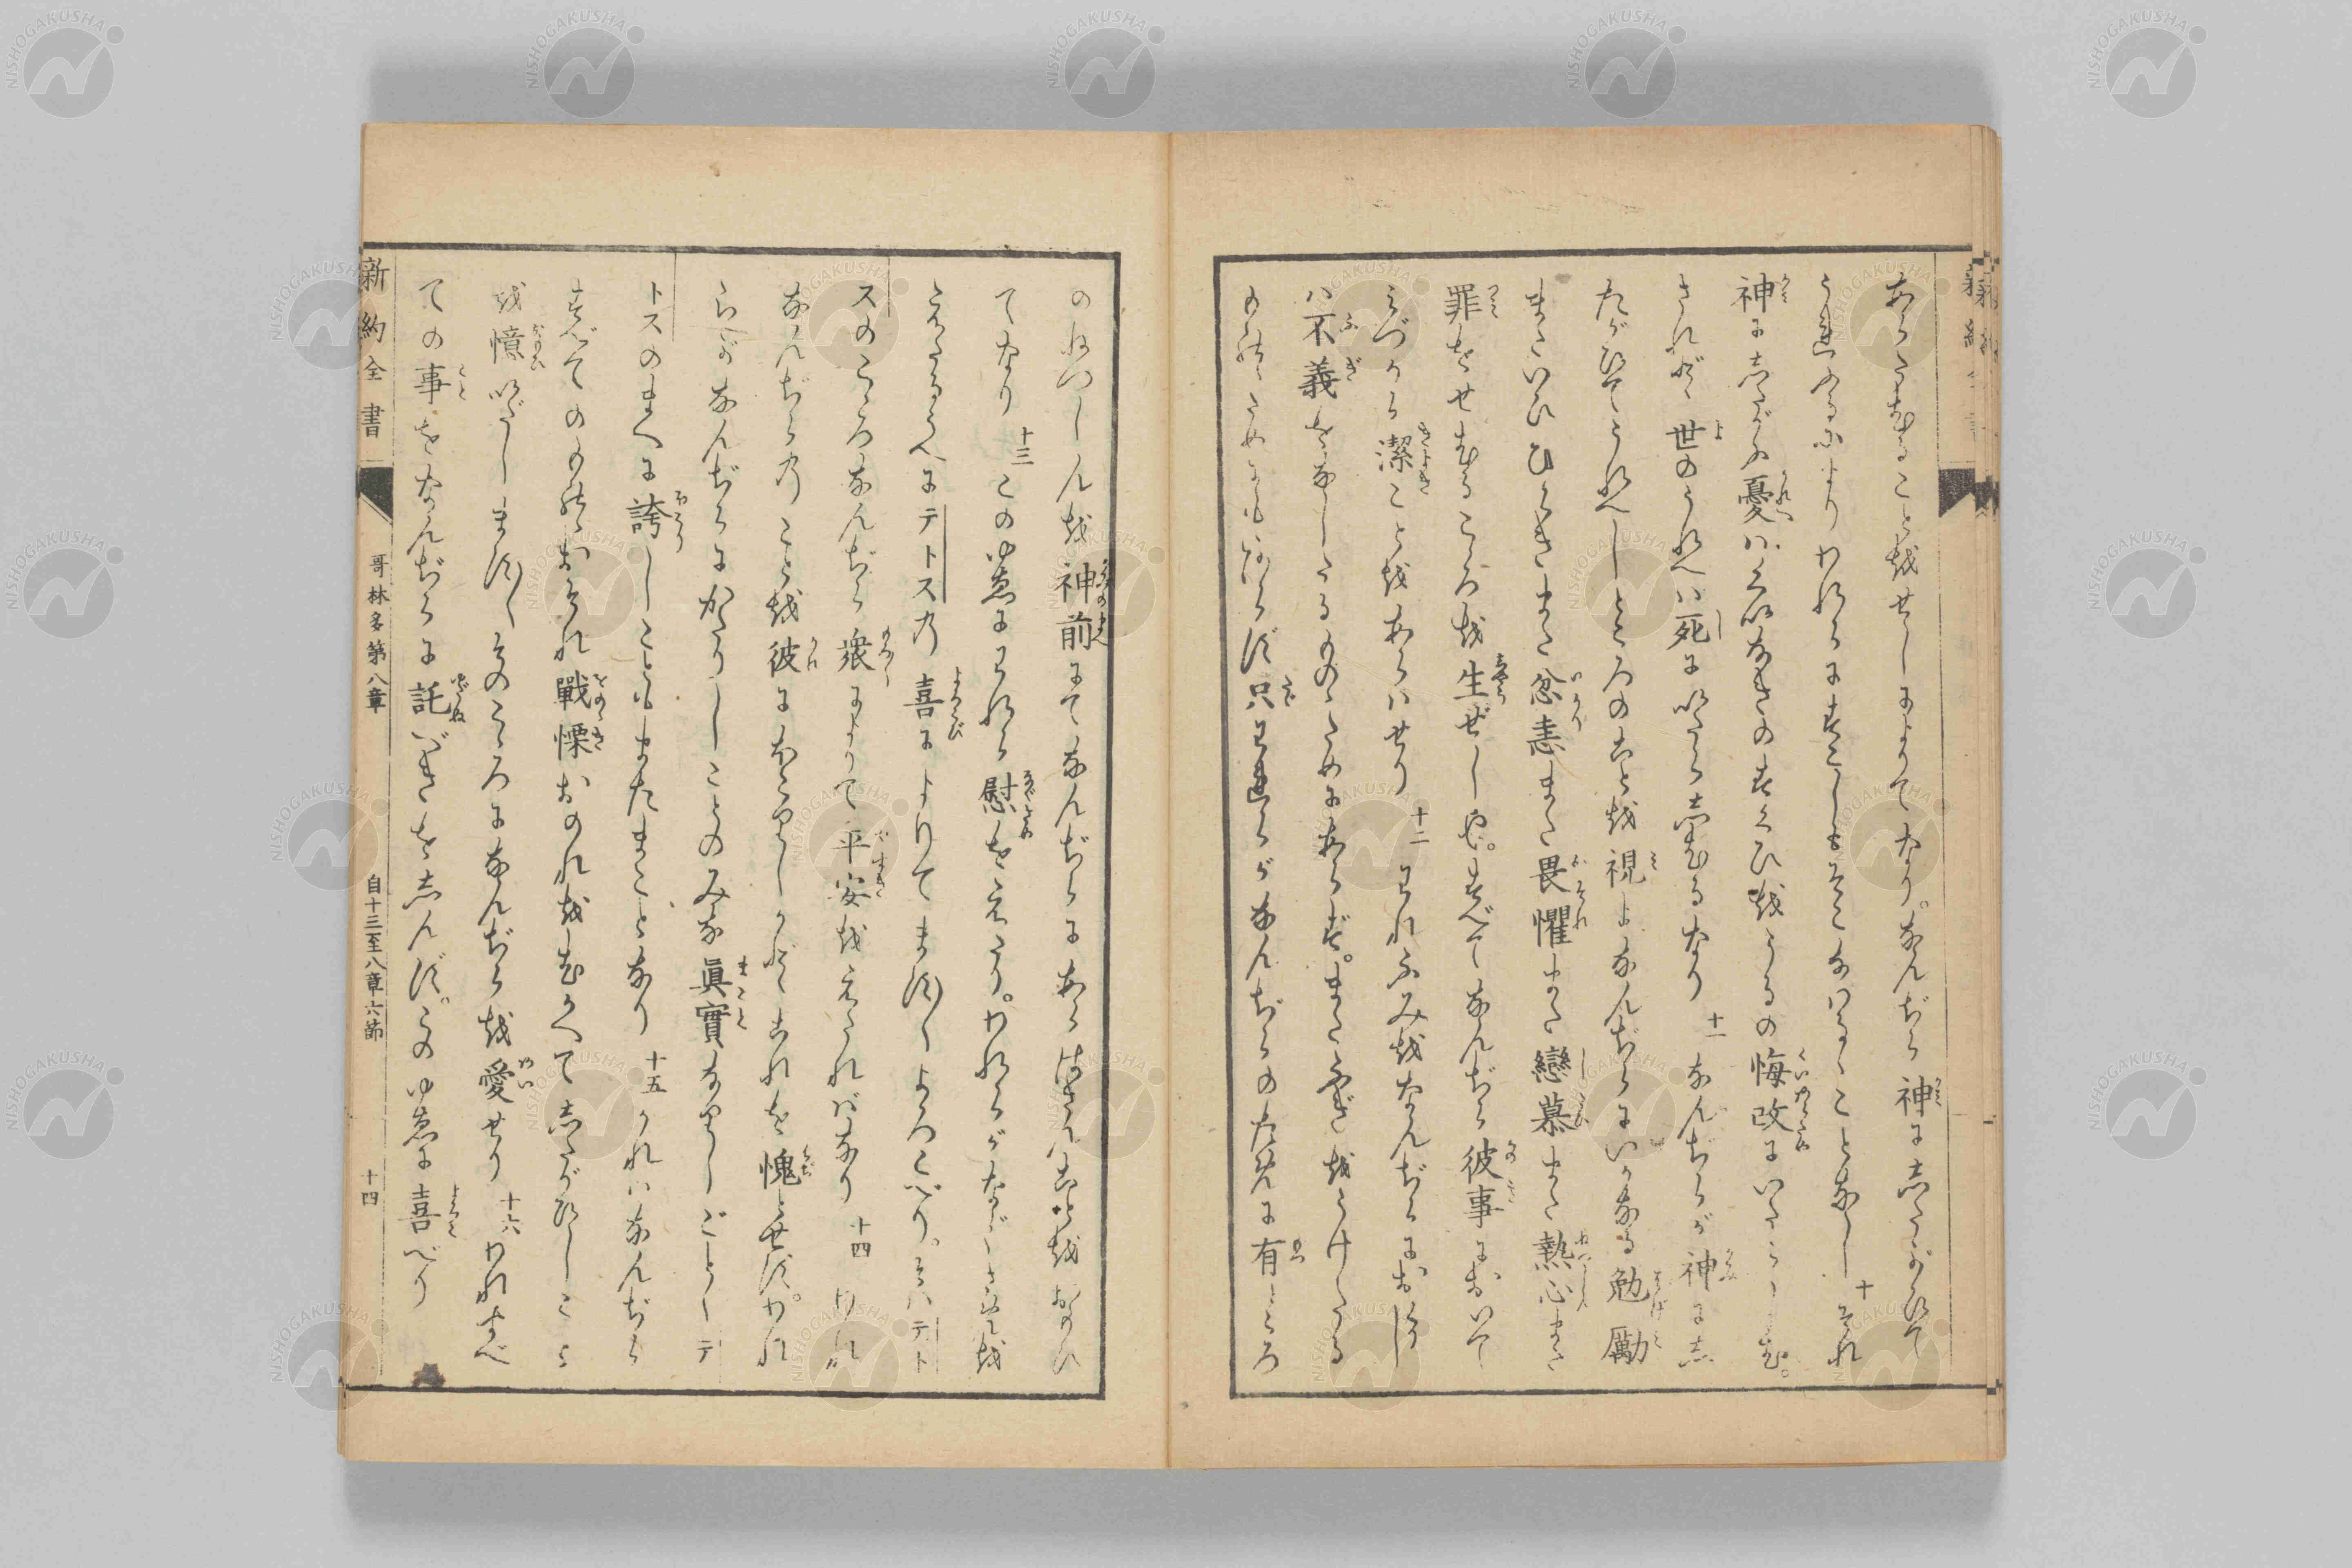 あらたむることをせしによりてなり。なんぢら神にしたがひて
うれふるによりわれらにすこしもそこなはるゝことなし 十 それ
神にしたがふ憂ハくいなきのすくひをうるの悔改にいたらしむ。
されど世のうれへハ死にいたらしむるなり 十一 なんぢらが神にし
たがひてうれへしところのことを視よなんぢらにいかなる勉勵
またいひひらきまた忿恚また畏懼また戀慕また熱心また
罪をせむるこころを生ぜしや。すべてなんぢら彼事において
みづから潔ことをあらハせり 十二 われふみをなんぢらにおくりし
ハ不義をなしたるものゝためにあらず。また不ぎをうけしたる
ものゝためにもあらず只われらがなんぢらのために有ところ
のねつしんを神前にてなんぢらにあらはさんことをおもひ
てなり 十三 このゆゑにわれら慰をえたり。われらがなぐさめを
えたるうへにテトスの喜によりてますますよろこべり。そハテト
スのこゝろなんぢら衆によりて平安をえたればなり 十四 われ
なんぢらのことを彼にほこりしかどこれを愧とせず。われ
らがなんぢらにかたりしことのみな眞實なりしごとくテ
トスのまへに誇しこともまたまことなり 十五 かれハなんぢら
すべてのものゝおそれ戰慄おのれをむかへてしたがひしこと
を憶いだしますますそのこゝろになんぢらを愛せり 十六 われすべ
ての事をなんぢらに託べきをしんず。このゆゑに喜べり
新約全書
哥林多第八章
自十三至八章六節
十四